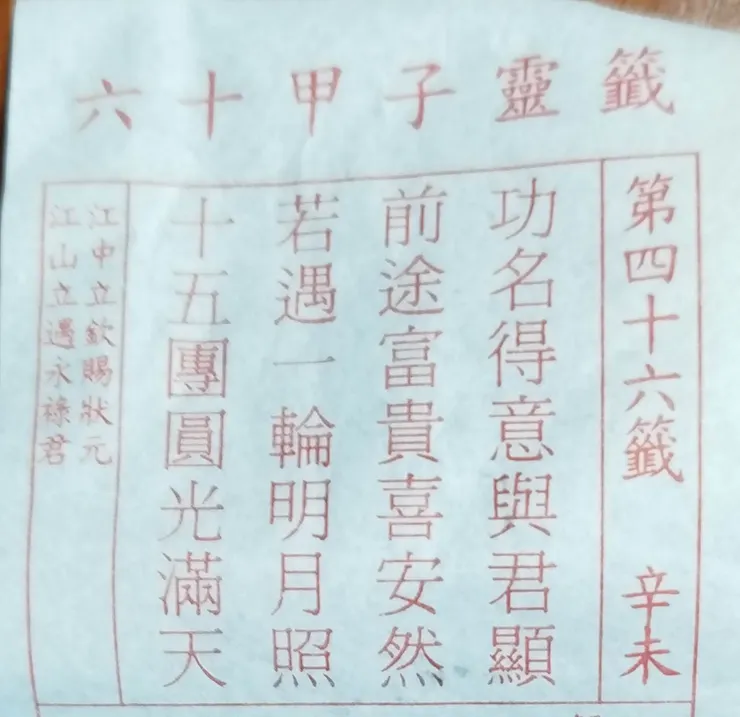 籤靈子甲十六
第四十六籤 辛未
功名得意與君顯
前途富貴喜安然
若遇一輪明月照
十五團圓光滿天
江中立欽賜狀元
江山立遇永祿君